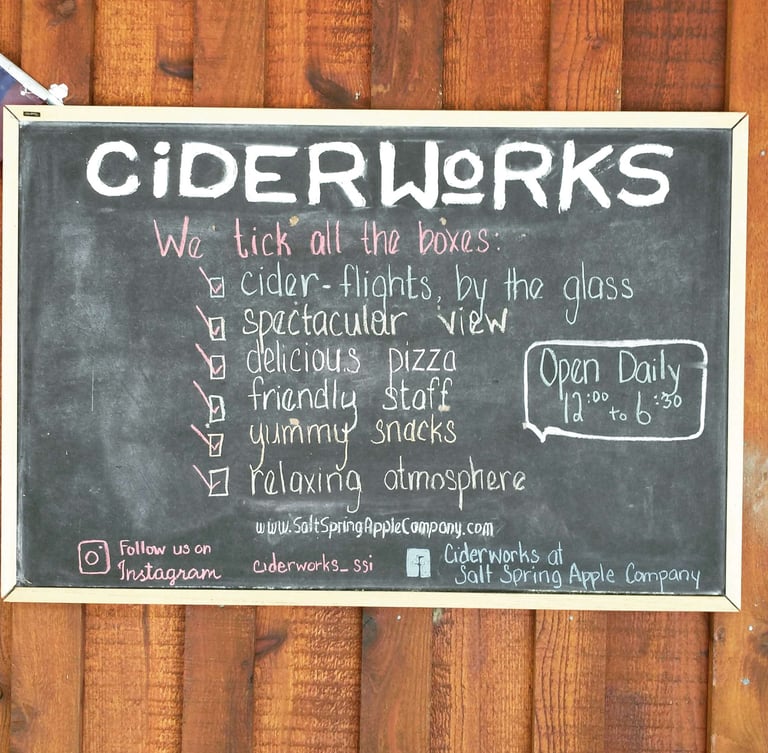 CiDERWoRKS
We tick all the boxes:
cider-flights, by the glass
spectacular view
delicious pizza
friendly staff
yummy snacks
relaxing atmosphere
Open Daily
12:00 to 6:30
www.SaltSpringAppleCompany.com
Follow us on
Instagram
ciderworks_ssi
f
Ciderworks at
Salt Spring Apple Company